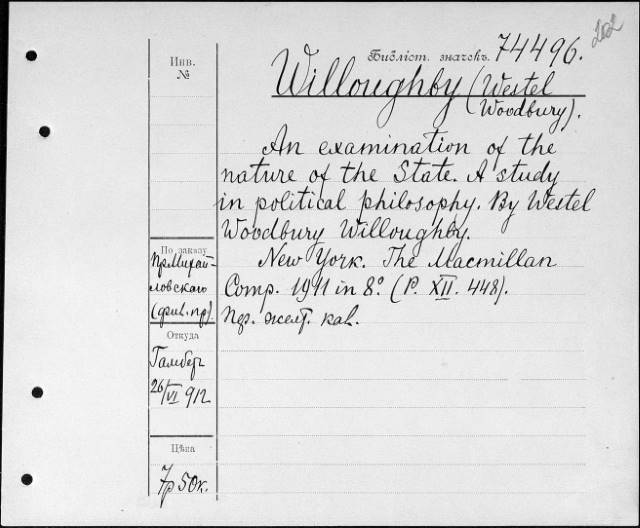 202
Инв.
№
Библіот. значекъ. 74496.
Willoughby (Westel
Woodbury).
An examination of the
nature of the State. A study
in political philosophy. By Westel
Woodbury Willoughby.
New York. The Macmillan
Comp. 1911 in 8º. (P. XII. 448).
желт.
По заказу
Пр. Михай-
ловскаго
Откуда
26/VI 912
Цѣна
7р 50к.